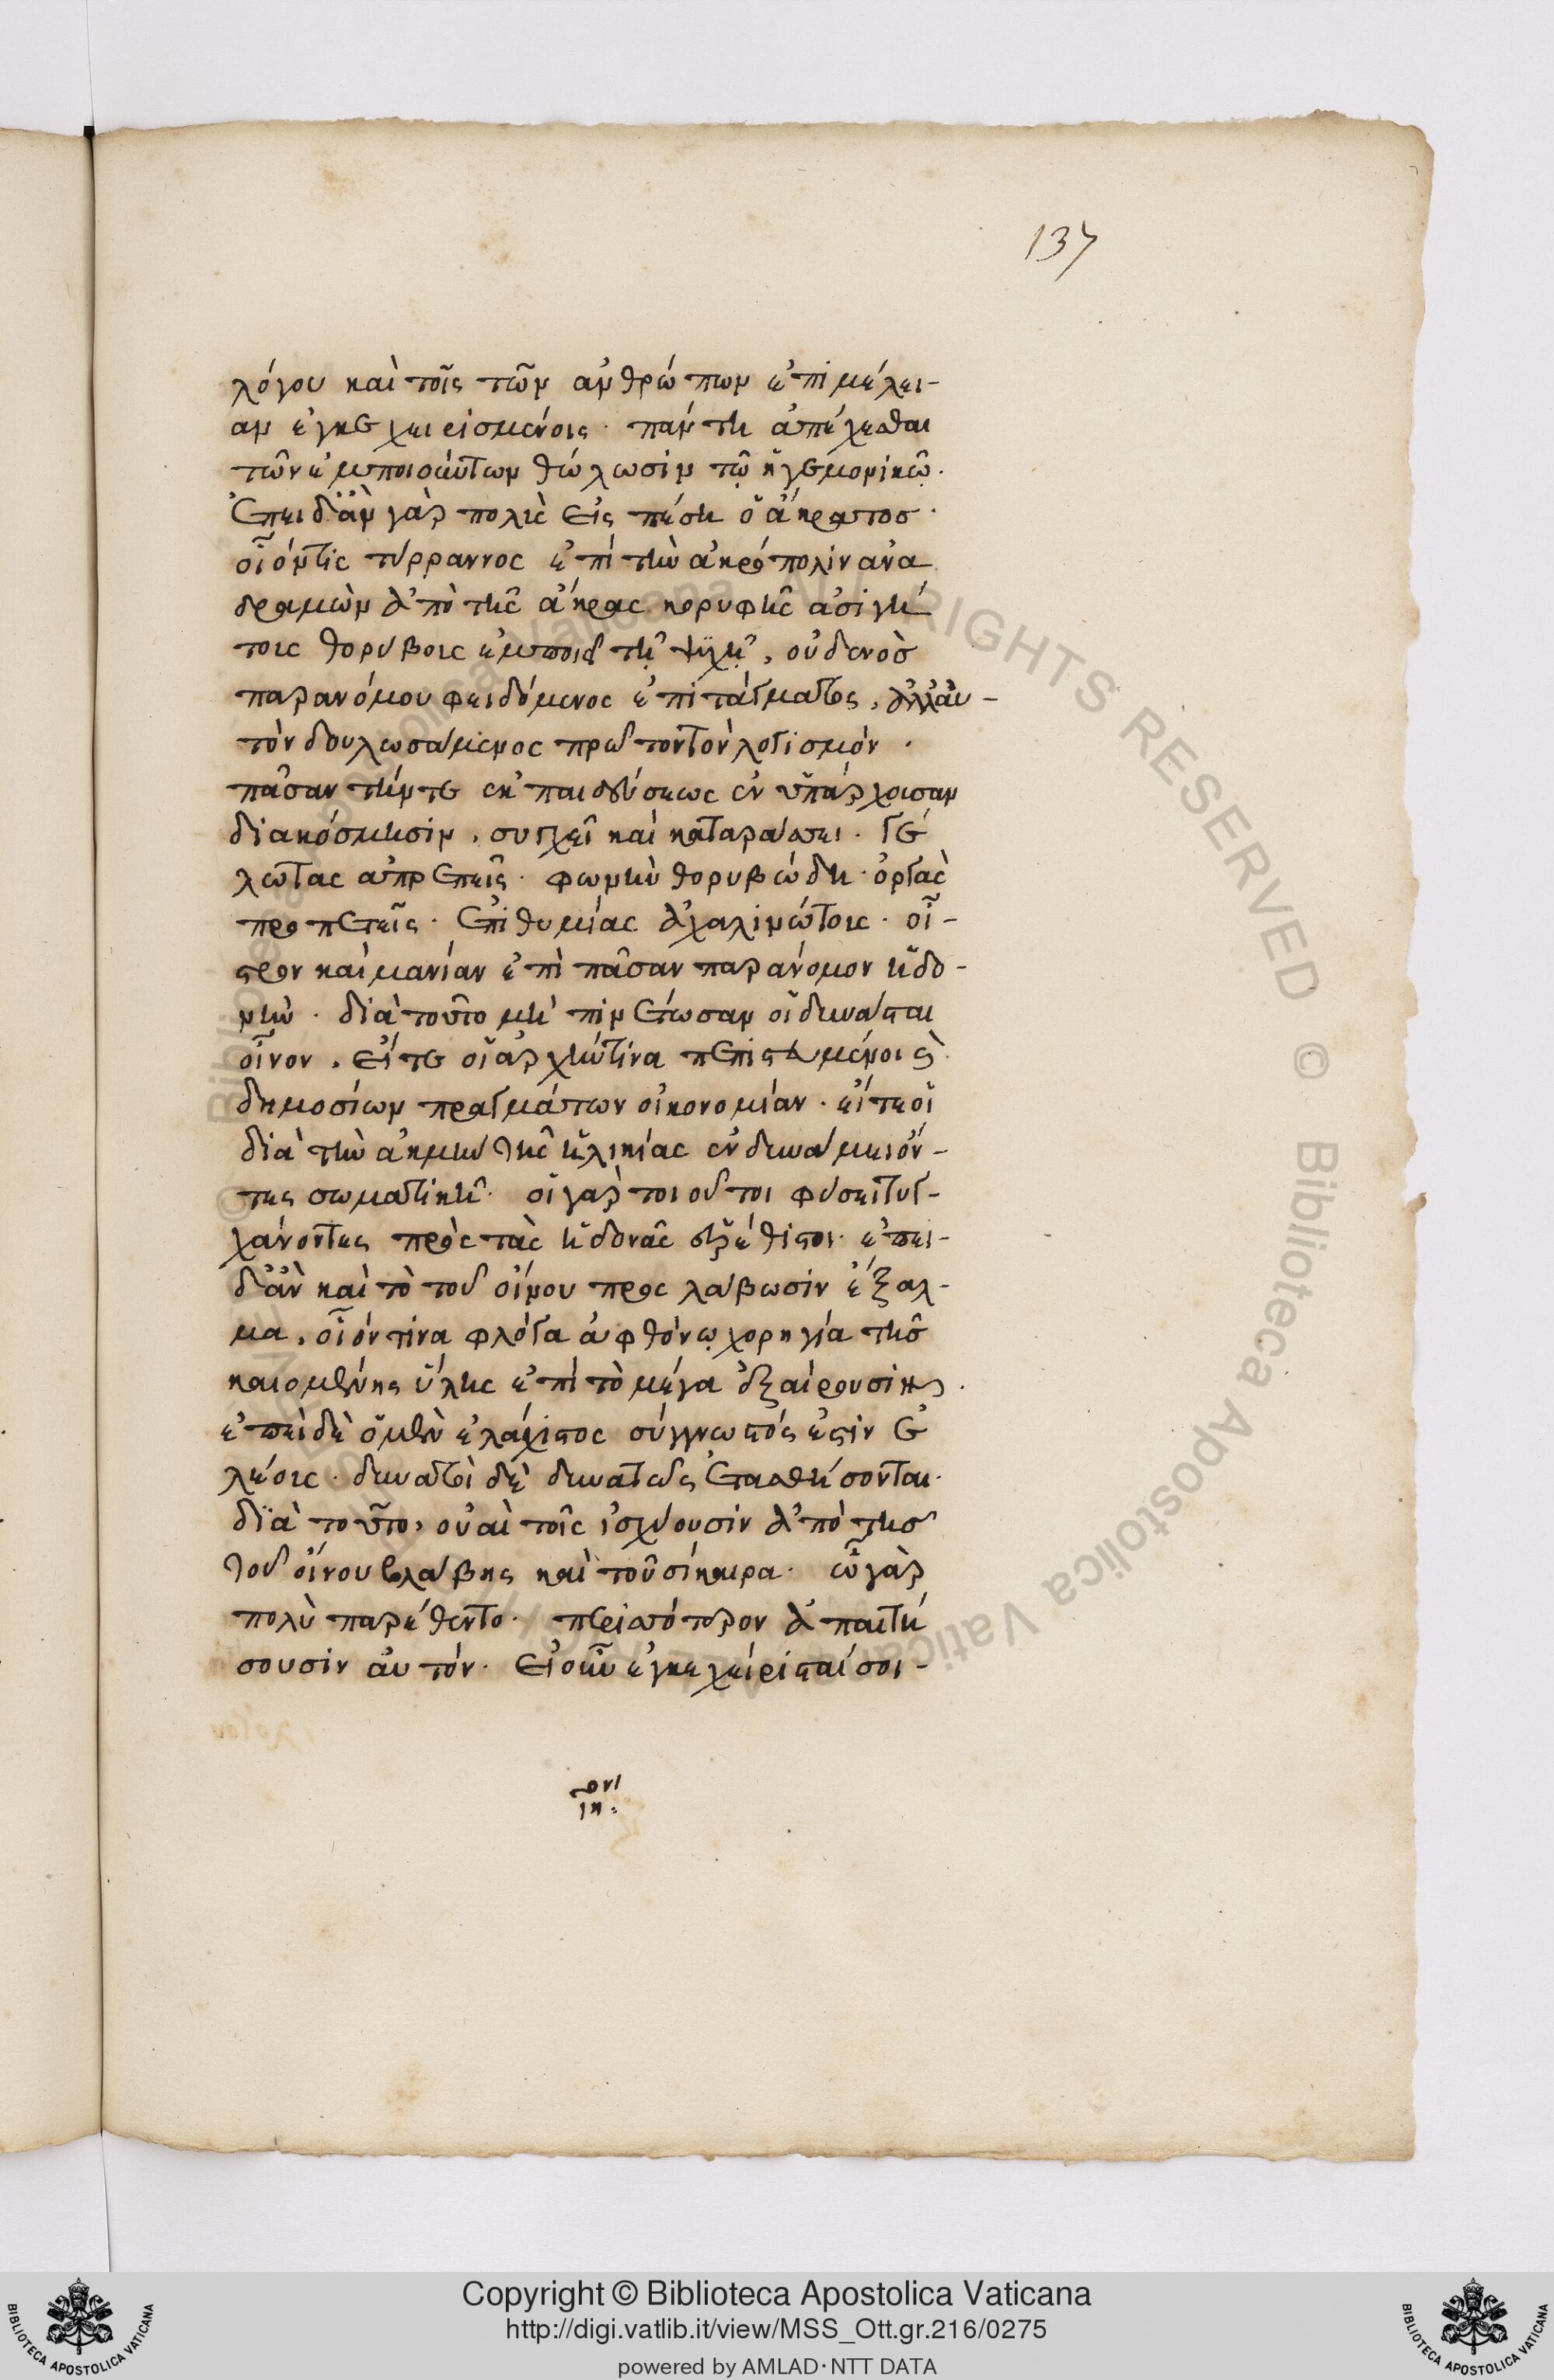 137
λόγου καὶ τοῖς τῶν ἀνθρώπων ἐπιμέλει-
αν ἐγκεχειρισμένοις· πάντη ἀπέχεσθαι
τῶν ἐμποιούντων θόλωσιν τῷ ἡγεμονικῷ.
Ἐπειδὰν γὰρ πολὺς εἰσπέση ὁ ἄκρατος·
οἷόν τις τύρραννος ἐπὶ τὴν ἀκρόπολιν ἀνα
δραμὼν ἀπὸ τῆς ἄκρας κορυφῆς ἀσιγή
τοις θορύβοις ἐμποιεῖ τῇ ψυχῇ, οὐδενὸσ
παρανόμου φειδόμενος ἐπιτάγματος, ἀλλ' αὐ-
τὸν δουλωσάμενος πρῶτον τὸν λογισμόν.
πᾶσαν τήν τε ἐκ παιδεύσεως ἐνυπάρχουσαν
διακόσμησιν, συγχεῖ καὶ καταράσσει. γέ
λωτας ἀπρεπεῖς. φωνὴν θορυβώδη. ὀργὰς
προπετεῖς. ἐπιθυμίας ἀχαλινώτοις. οἶ-
στρον καὶ μανίαν ἐπὶ πᾶσαν παράνομον ἡδο-
νήν. διὰ τοῦτο μὴ πινέτωσαν οἱ δυνάσται
οἶνον, εἴτε οἱ ἀρχήν τινα πεπιστευμένοι ἢ
δημοσίων πραγμάτων οἰκονομίαν. εἴτε οἱ
διὰ τὴν ἀκμὴν τῆς ἡλικίας ἐν δυνάμει ὄν-
τες σωματικῇ. οἱ γὰρ τοιοῦτοι φύσει τυγ-
χάνοντες πρὸς τὰς ἡδονὰς εὐερέθιστοι. ἐπει-
δὰν καὶ τὸ τοῦ οἴνου προσλάβωσιν ἔξαλ-
μα, οἷόν τινα φλόγα ἀφθόνῳ χορηγία τῆς
καιομένης ὕλης ἐπὶ τὸ μέγα ἐξαίρουσιν.
ἐπεὶ δὲ ὁ μὲν ἐλάχιστος σύγγνωστός ἐστιν ἐ
λέοις. δυνατοὶ δὲ δυνατῶς ἐτασθήσονται.
διὰ τοῦτο, οὐαὶ τοῖς ἰσχύουσιν ἀπὸ τῆσ
τοῦ οἴνου βλάβης καὶ τοῦ σίκερα. ᾧ γὰρ
πολὺ παρέθεντο. περισσότερον ἀπαιτή
σουσιν αὐτόν. εἰ οὖν ἐγκεχείρισταί σοι-
Copyright © Biblioteca Apostolica Vaticana
http://digi.vatlib.it/view/MSS_Ott.gr.216/0275
powered by AMLAD·NTT DATA